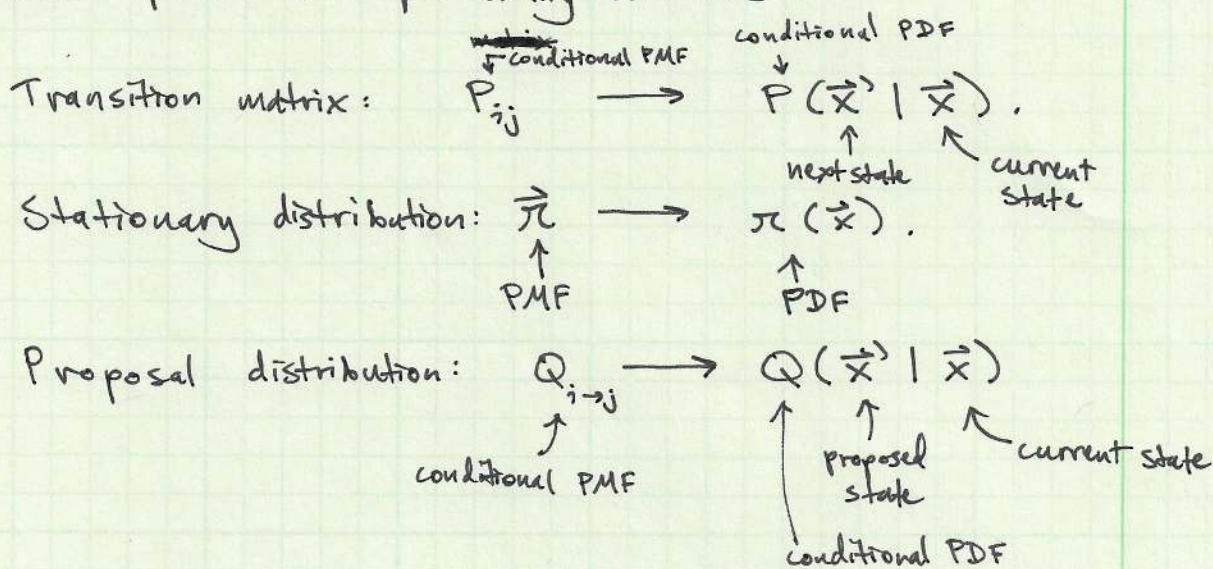 matrix
conditional PMF conditional PDF
Transition matrix: P_ij → P(x⃗' | x⃗).
next state current state
Stationary distribution: π⃗ → π(x⃗).
PMF PDF
Proposal distribution: Q_i→j → Q(x⃗' | x⃗)
conditional PMF proposed state current state
conditional PDF